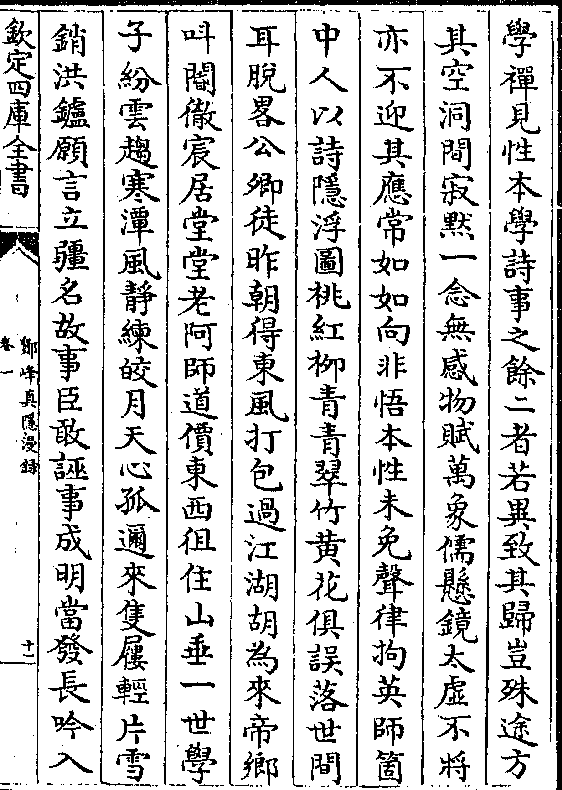 學禪見性本學詩事之餘二者若異致其歸豈殊途方
其空洞間寂默一念無感物賦萬象儒懸鏡太虛不將
亦不迎其應常如如向非悟本性未免聲律拘英師箇
中人以詩隱浮圖桃紅柳青青翠竹黃花俱誤落世間
耳脫畧公卿徒昨朝得東風打包過江湖胡為來帝鄉
呌閽徹宸居堂堂老阿師道價東西徂住山垂一世學
子紛雲趨寒潭風靜練皎月天心孤邇來隻屨輕片雪
銷洪鑪願言立疆名故事臣敢誣事成明當發長吟入
欽定四庫全書
鄮峰真隱漫錄
卷一
十一